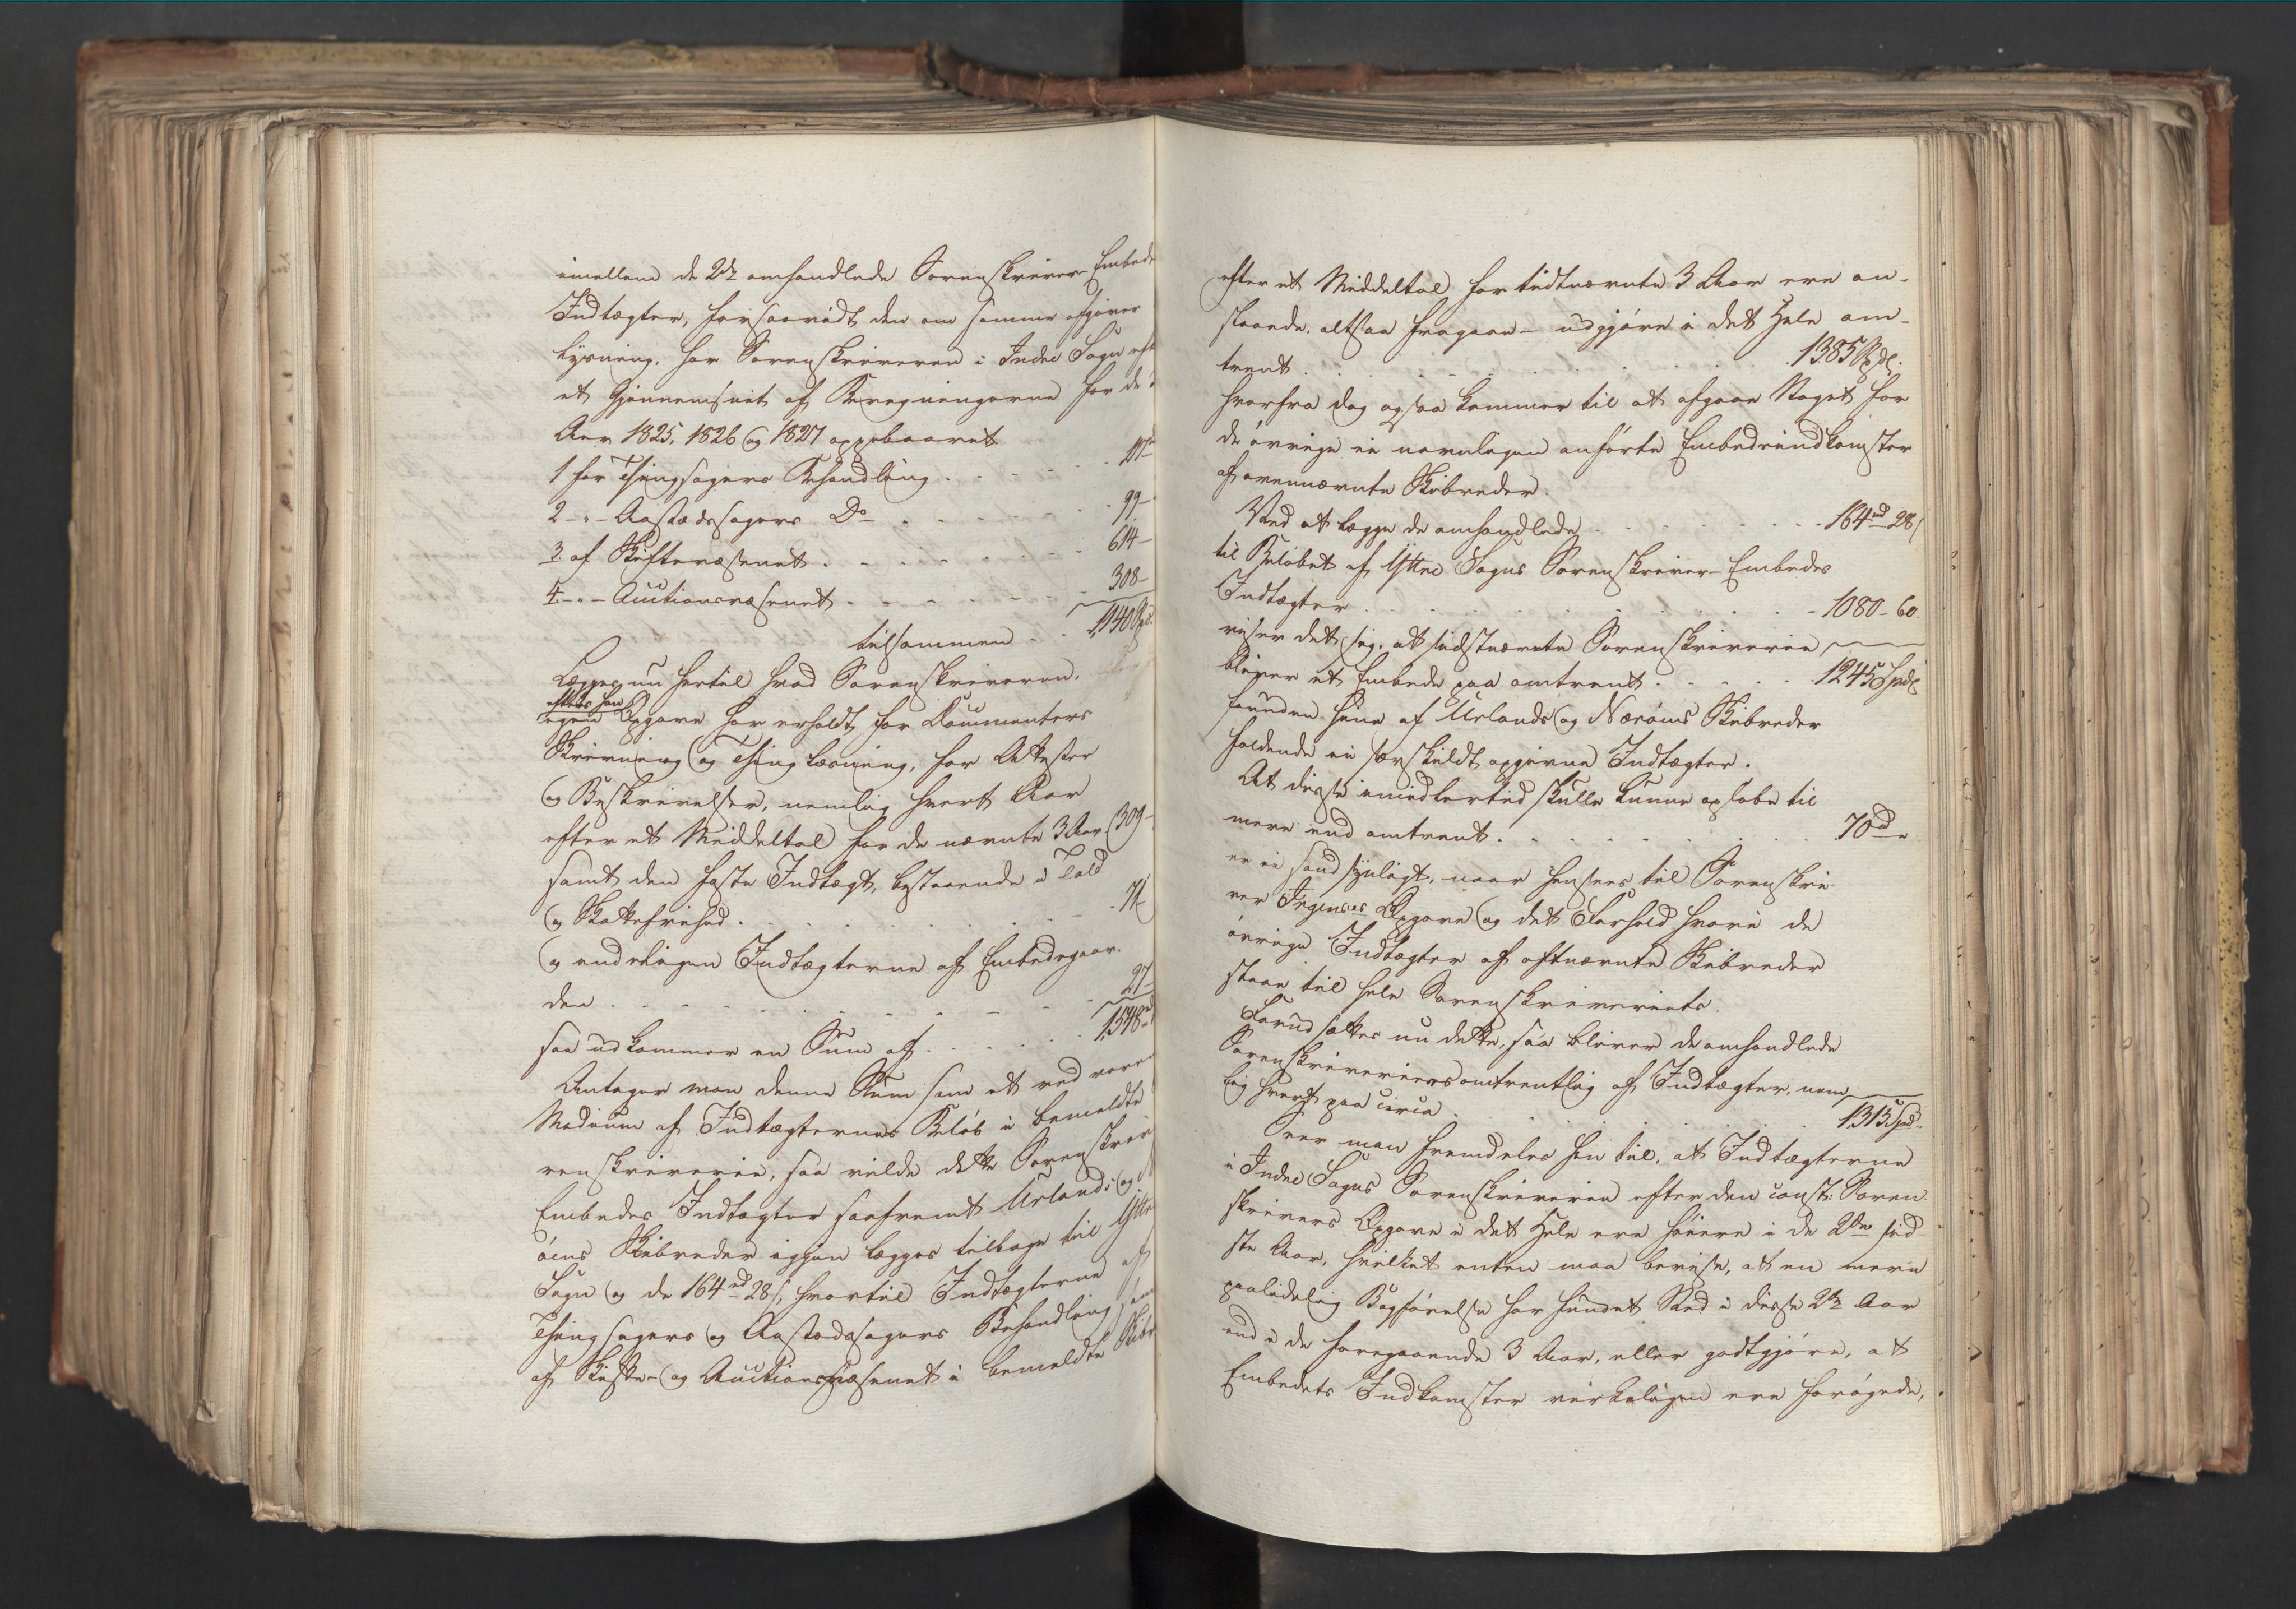 imellem de 2de omhandlede Sorenskriver-Embeders
Indtægter, forsaavidt den om samme afgiver
Lysning, har Sorenskriveren i Indre Sogn efter
et Gjennemsnit af Beregningerne for de
Aar 1825, 1826 og 1827 oppebaaret
1 for Thingsagers Behandling . . . . .
2 - " - Aastædssagers Do . . . . . . 99 -
3 af Skiftevæsenet . . . . . . 614 -
4 - " - Auctionsvæsenet . . . . . . 308 -
tilsammen . . 1140 Spd.
Lægges nu hertil hvad Sorenskriveren,
efter hans
egen Opgave har erholdt for Documenters
Skrivning og Thinglæsning, for Attester
og Beskrivelser, nemlig hvert Aar
efter et Middeltal for de nævnte 3 Aar 309 -
samt den faste Indtægt, bestaaende i Told
og Skattefrihed . . . . . . 71
og endeligen Indtægterne af Embedsgaar-
den . . . . . . 27
saa udkommer en Sum af . . . . . 1,548
Antager man denne Sum som et ved vore
Medium af Indtægternes Beløb i bemeldte
renskriverie, saa vilde dette Sorenskriver
Embedes Indtægter saafremt Urlands og
öens Skibreder igjen lægges tilbage til Yttre
Sogn og de 164 28 s, hvortil Indtægterne af
Thingsagers og Aastædssagers Behandling samt
af Skifte- og Auctionsvæsenet i bemeldte Skibr
efter et Middeltal for tidtnævnte 3 Aar ere an-
slaaede, altsaa fragaae - udgjöre i det Hele om-
trent . . . . . . 1385 Spd.
hvorfra dog ogsaa kommer til at afgaae Noget for
de övrige ei navnligen anförte Embedsindkomster
af ovennævnte Skibreder.
Ved at lægge de omhandlede . . . . . 164 28 s
til Beløbet af Yttre Sogns Sorenskriver-Embedes
Indtægter . . . . . . 1080 - 60.
viser det sig, at sidstnævnte Sorenskriverie
bliver et Embede paa omtrent . . . . 1245 Spd
foruden hine af Urlands og Næröens Skibreder
faldende ei særskildt opgivne Indtægter.
At disse imidlertid skulle kunne opløbe til
mere end omtrent . . . . . . 70 d "
er ei sandsynligt, naar henses til Sorenskri-
ver Irgenses Opgave og det Forhold hvori de
övrige Indtægter af oftnævnte Skibreder
staae til hele Sorenskriveriets.
Forudsættes nu dette, saa bliver de omhandlede
Sorenskriverier omtrentlig af Indtægter, nem-
lig hvert paa circa . . . . . . 1315 Spd.
Seer man fremdeles hen til, at Indtægterne
i Indre Sogns Sorenskriverie efter den const: Soren
skrivers Opgave i det Hele ere höiere i de 2de sid-
ste Aar, hvilket enten maa bevise, at en mere
paalidelig Bogførelse har fundet Sted i disse 2de Aar
end i de foregaaende 3 Aar, eller godtgjöre, at
Embedets Indkomster virkeligen ere forögede,